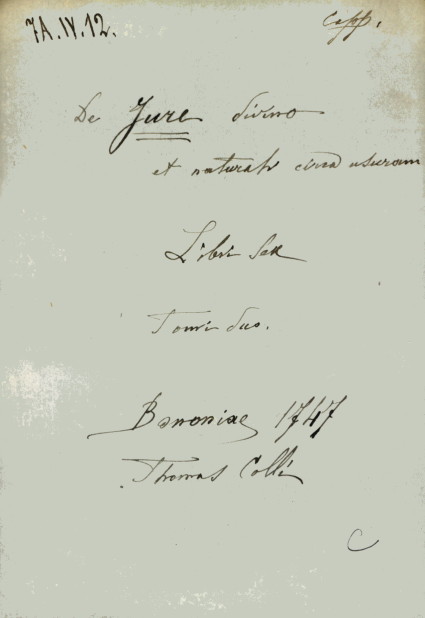 7A.IV.12.
Capp.
De Jure divino
et naturali circa usuram
Libri sex
Tomi duo.
Bononiae 1747
Thomas Colli
C